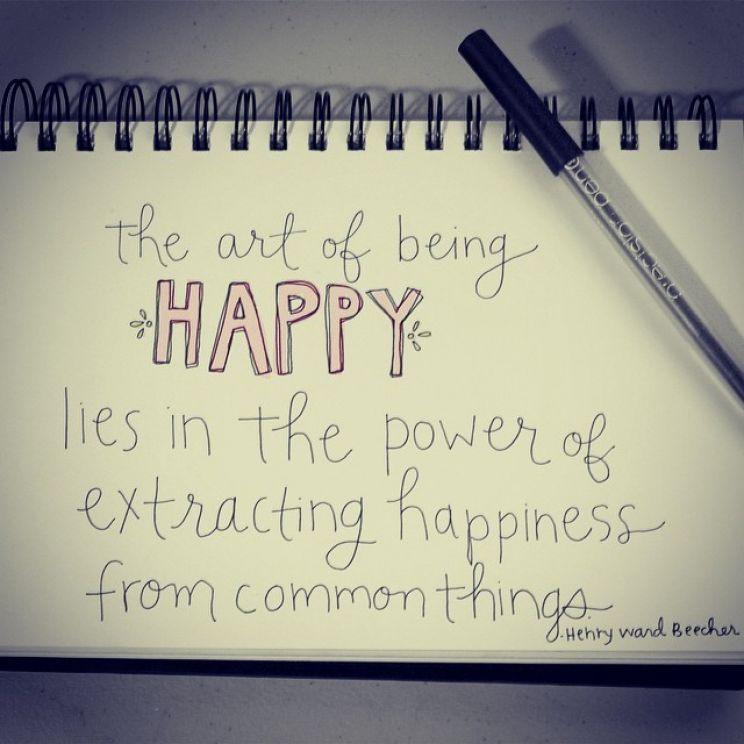 the art of being
HAPPY
lies in the power of
extracting happiness
from common things.
-Henry Ward Beecher
precision pen